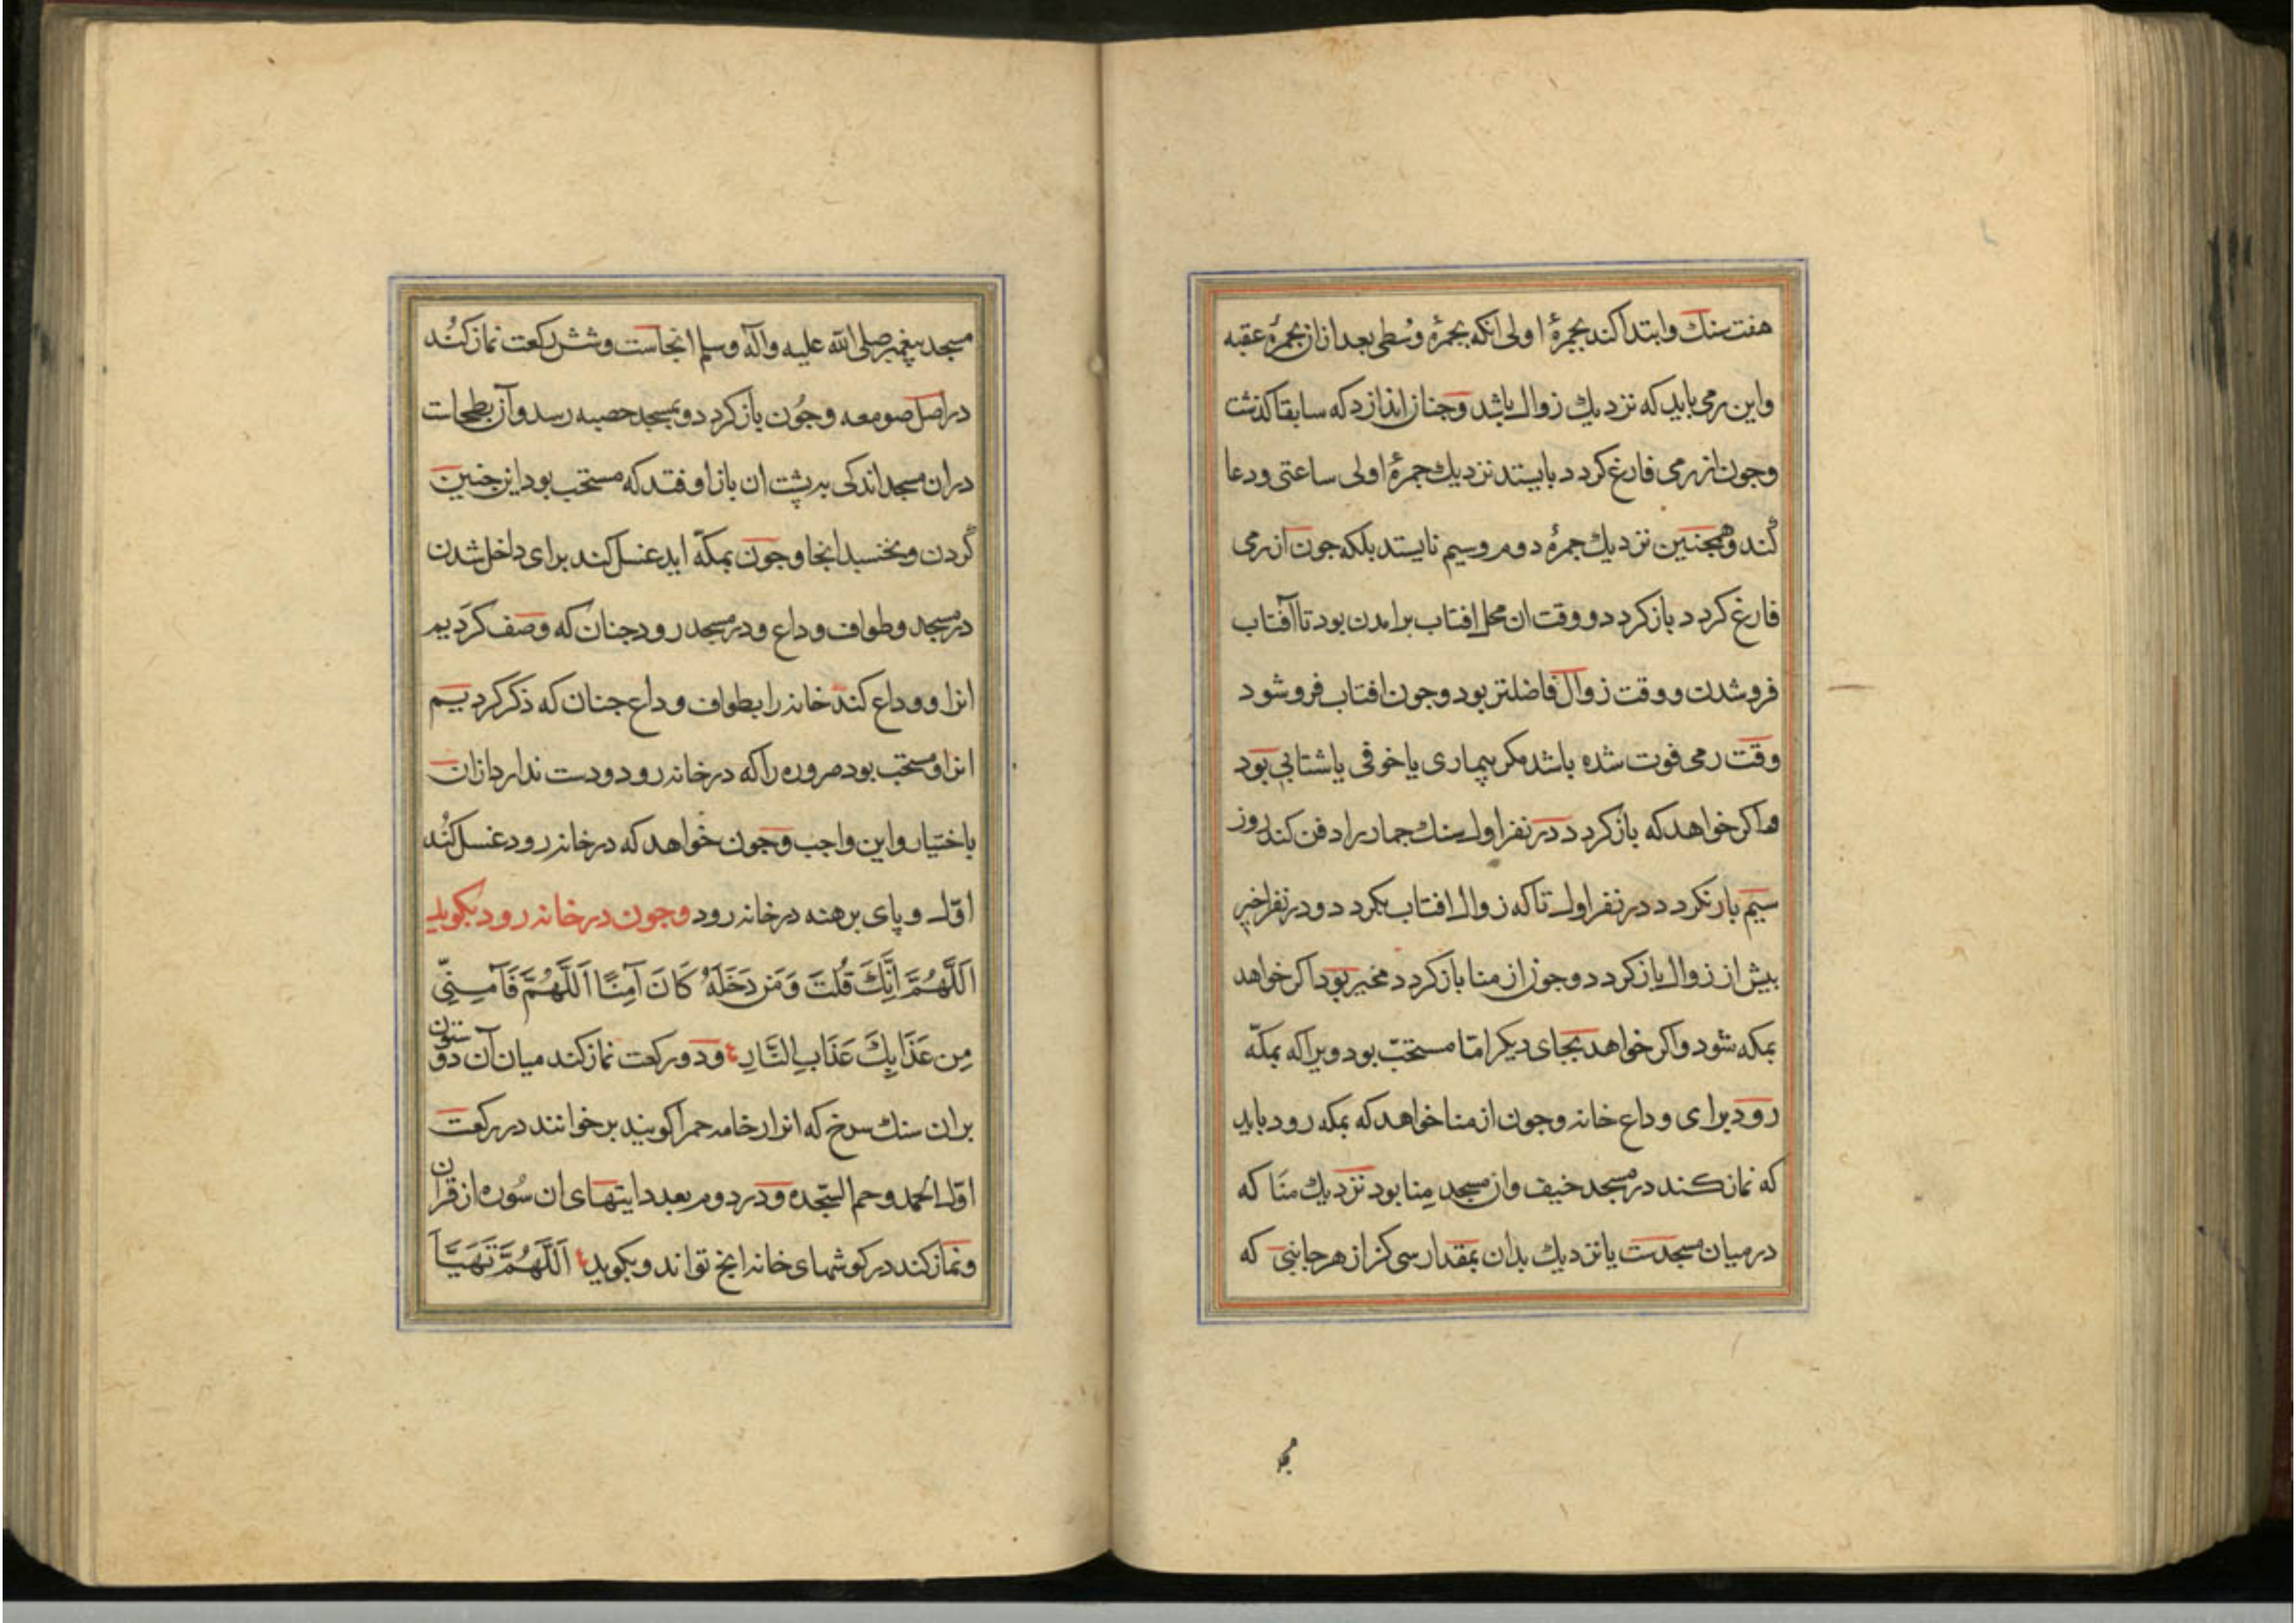 هفت سنك وابتدا كند بجمرهٔ اولى انكه بجمرهٔ وسطى بعد ازان بجمرهٔ عقبه
واين رمى بايد كه نزديك زوال باشد وچنان اندازد كه سابقا كذشت
وجون از رمى فارغ كردد بايستد نزديك جمرهٔ اولى ساعتى ودعا
كند وهمجنين نزديك جمرهٔ دوم وسيم نايستد بلكه جون از رمى
فارغ كردد باز كردد ووقت ان محل افتاب برامدن بود تا آفتاب
فروشدن ووقت زوال فاضلتر بود وجون افتاب فروشود
وقت رمى فوت شده باشد مكر بيمارى يا خوفى يا شتابى بود
واكر خواهد كه باز كردد در نفر اول سنك جمار را دفن كند روز
سيم باز نكردد در نفر اول تا كه زوال افتاب بكردد ودر نفر اخير
بيش از زوال باز كردد وجون از منا باز كردد مخير بود اكر خواهد
بمكه شود واكر خواهد بجاى ديكر امّا مستحبّ بود ويرا كه بمكّه
رود براى وداع خانه وجون از منا خواهد كه بمكه رود بايد
كه نماز كند در مسجد خيف وان مسجد مِنا بود نزديك منَا كه
در ميان مسجدست يا نزديك بدان بمقدار سى كز از هر جانبى كه
مسجد پيغمبر صلى الله عليه وآله وسلم انجاست وشش ركعت نماز كُند
در اصل صومعه وجُون باز كردد وبمسجد حصبه رسد وآن بطحاست
دران مسجد اندكى بر پشت ان باز اوفتد كه مستحب بود اين جنين
كردن ونخسبد انجا وجون بمكّه ايد غسل كند براى داخل شدن
در مسجد وطواف وداع ودر مسجد رود جنان كه وصف كرديم
انرا ووداع كند خانه را بطواف وداع جنان كه ذكر كرديم
انرا ومستحب بود صروره را كه در خانه رود ودست ندارد ازان
باختيار واين واجب وجون خواهد كه در خانه رود غسل كُند
اوّل وپاى برهنه در خانه رود وجون در خانه رود بكويد
اَللَّهُمَّ اِنَّكَ قُلتَ وَمَن دَخَلَهُ كَانَ آمِنًا اَللَّهُمَّ فَآمِنِّى
مِن عَذَابِكَ عَذَابِ النَّارِ ودو ركعت نماز كند ميان آن دو ستون
بران سنك سرخ كه انرا رخامه حمرا كويند برخوانند در ركعت
اوّل الحمد وحم السّجده ودر دوم بعدد ايتهاى ان سُوره از قران
ونماز كند در كوشهاى خانه انچ تواند وبكويد اَللَّهُمَّ تَهَيَّأَ